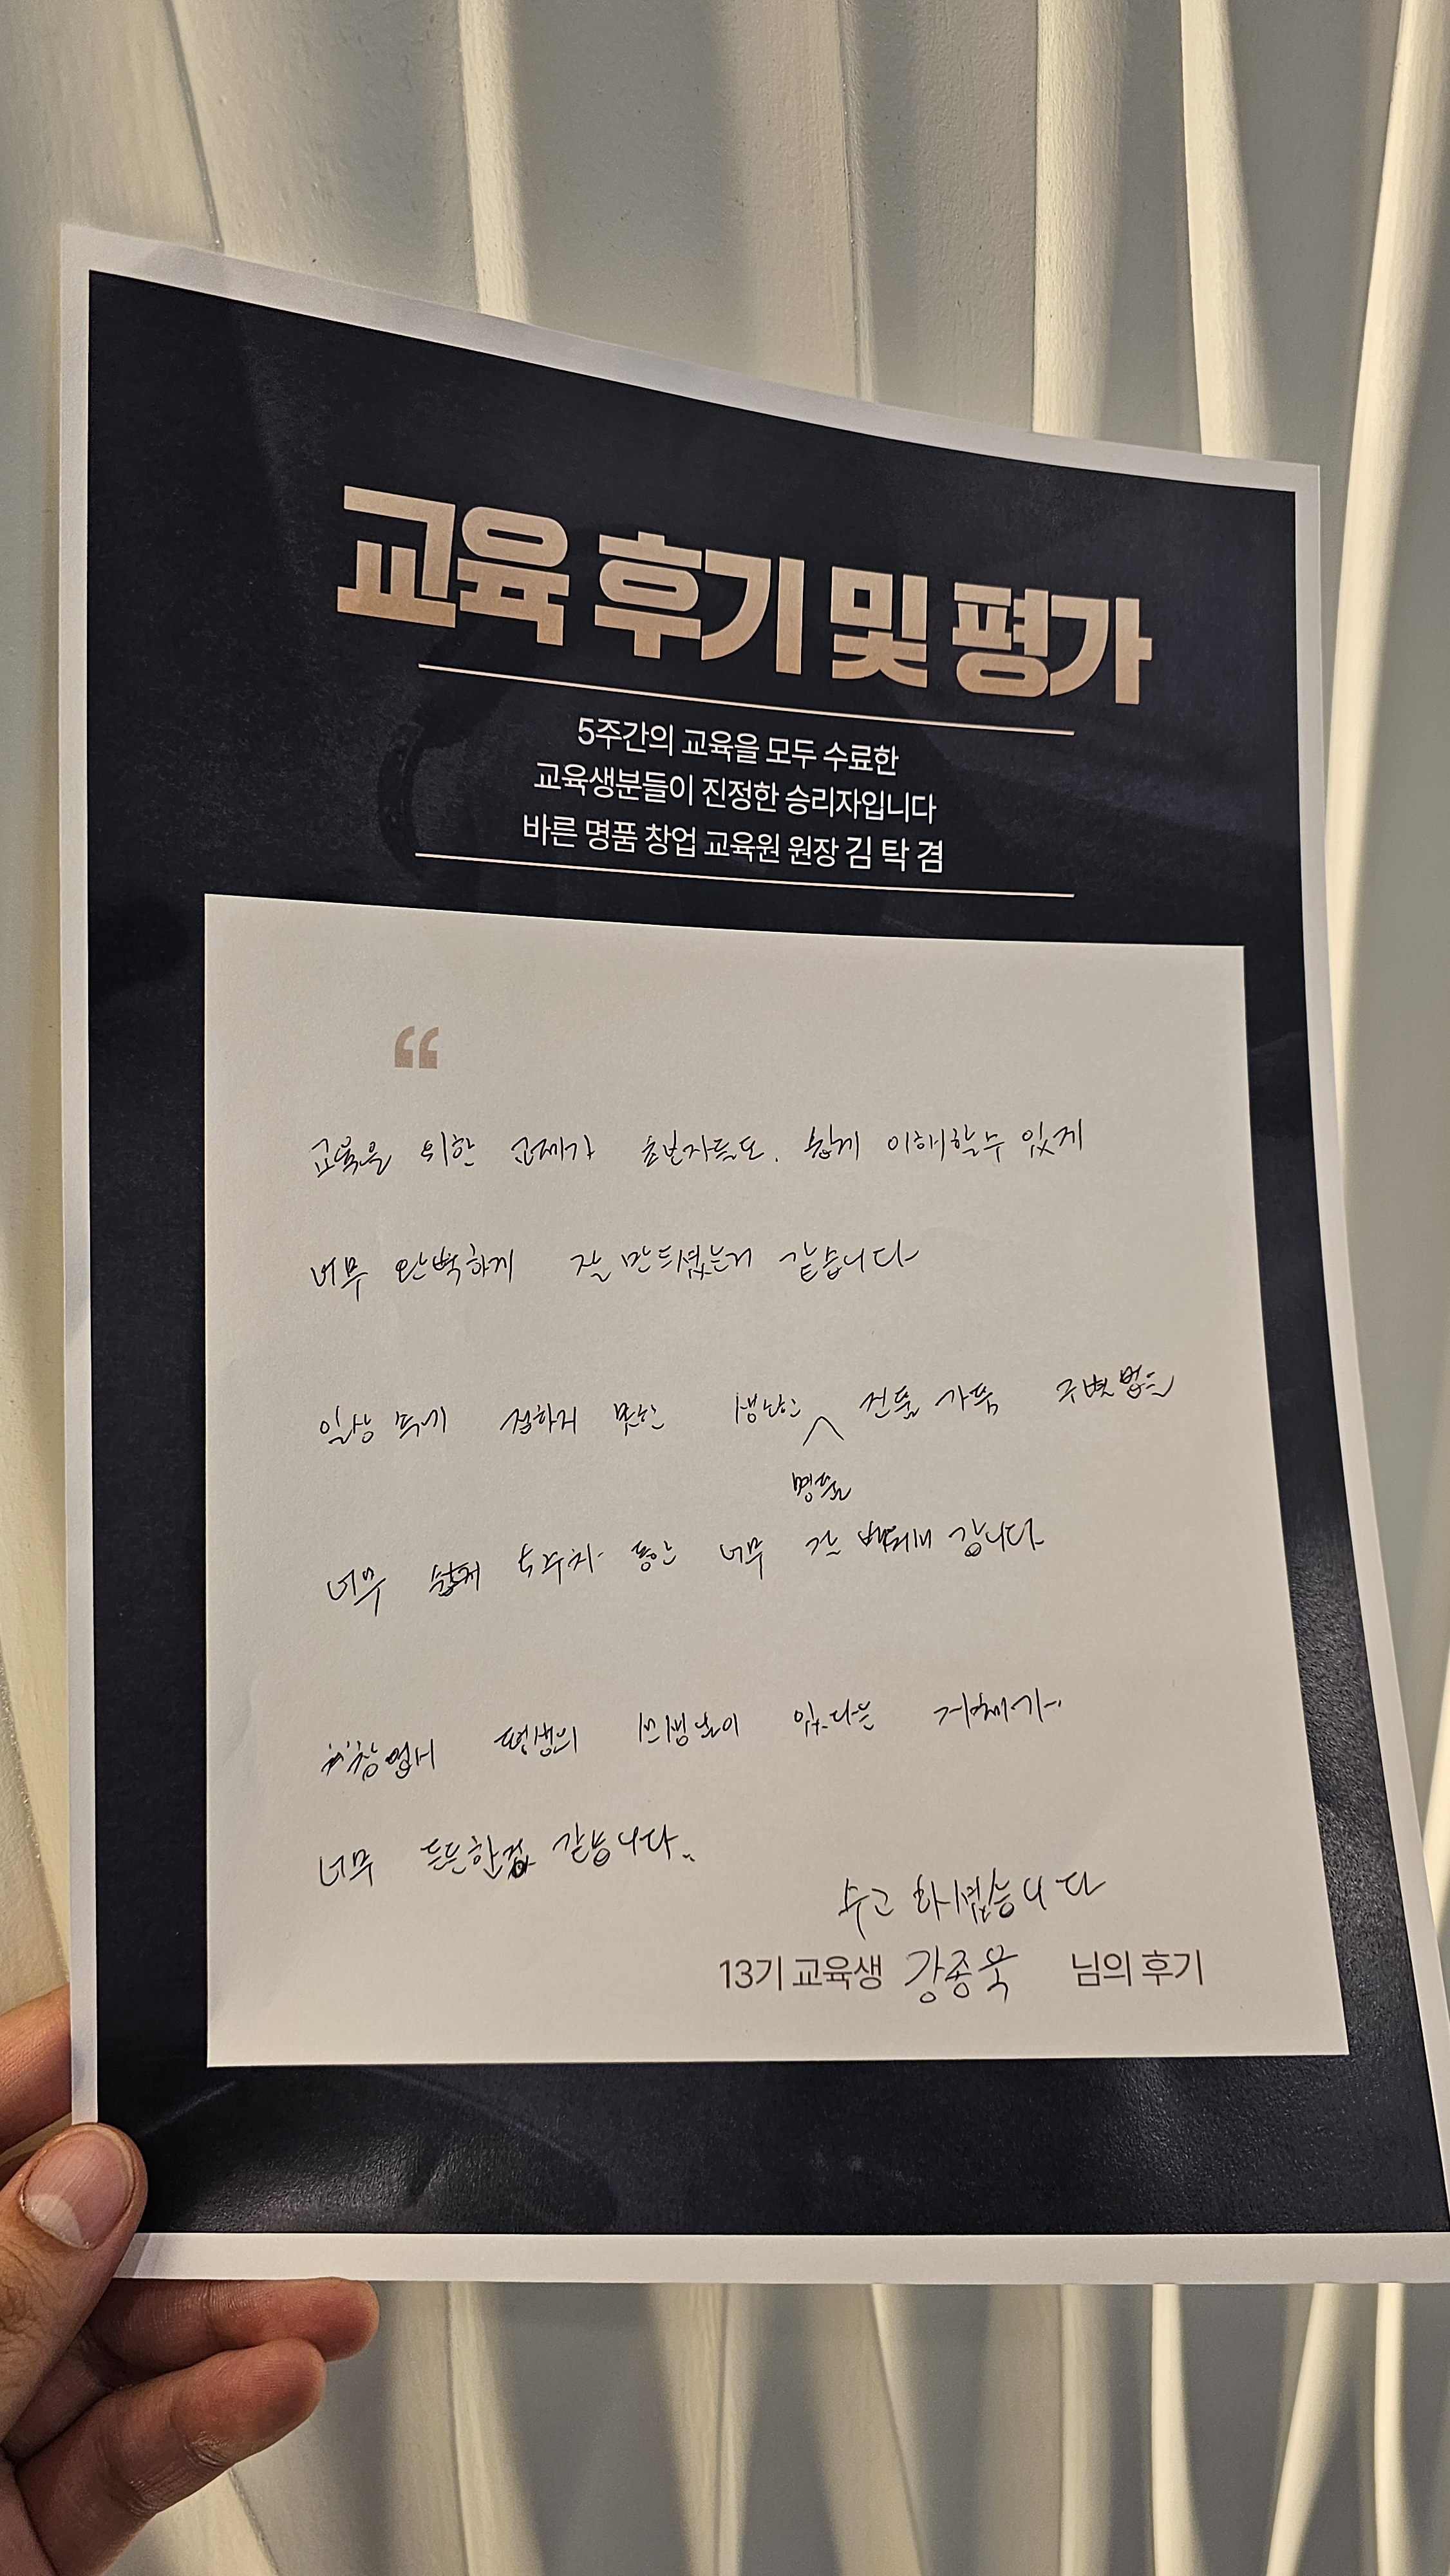 교육 후기 및 평가
5주간의 교육을 모두 수료한
교육생분들이 진정한 승리자입니다
바른 명품 창업 교육원 원장 김 탁 겸
“
교육을 위한 교제가 초보자들도. 쉽게 이해할수 있게
너무 완벽하게 잘 만드셨는거 같습니다
일상 접하지 못한 생난한 진품 가품 구별법을
명품
너무 쉽게 5주차 동안 너무 잘 배워 갑니다
창업에 평생의 있다는 자체가..
너무 든든한것 같습니다..
수고 하셨습니다
13기 교육생 강종욱 님의 후기